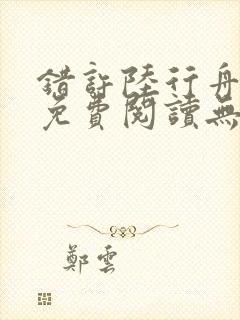 錯許陸行舟
免費閱讀無
鄭雲